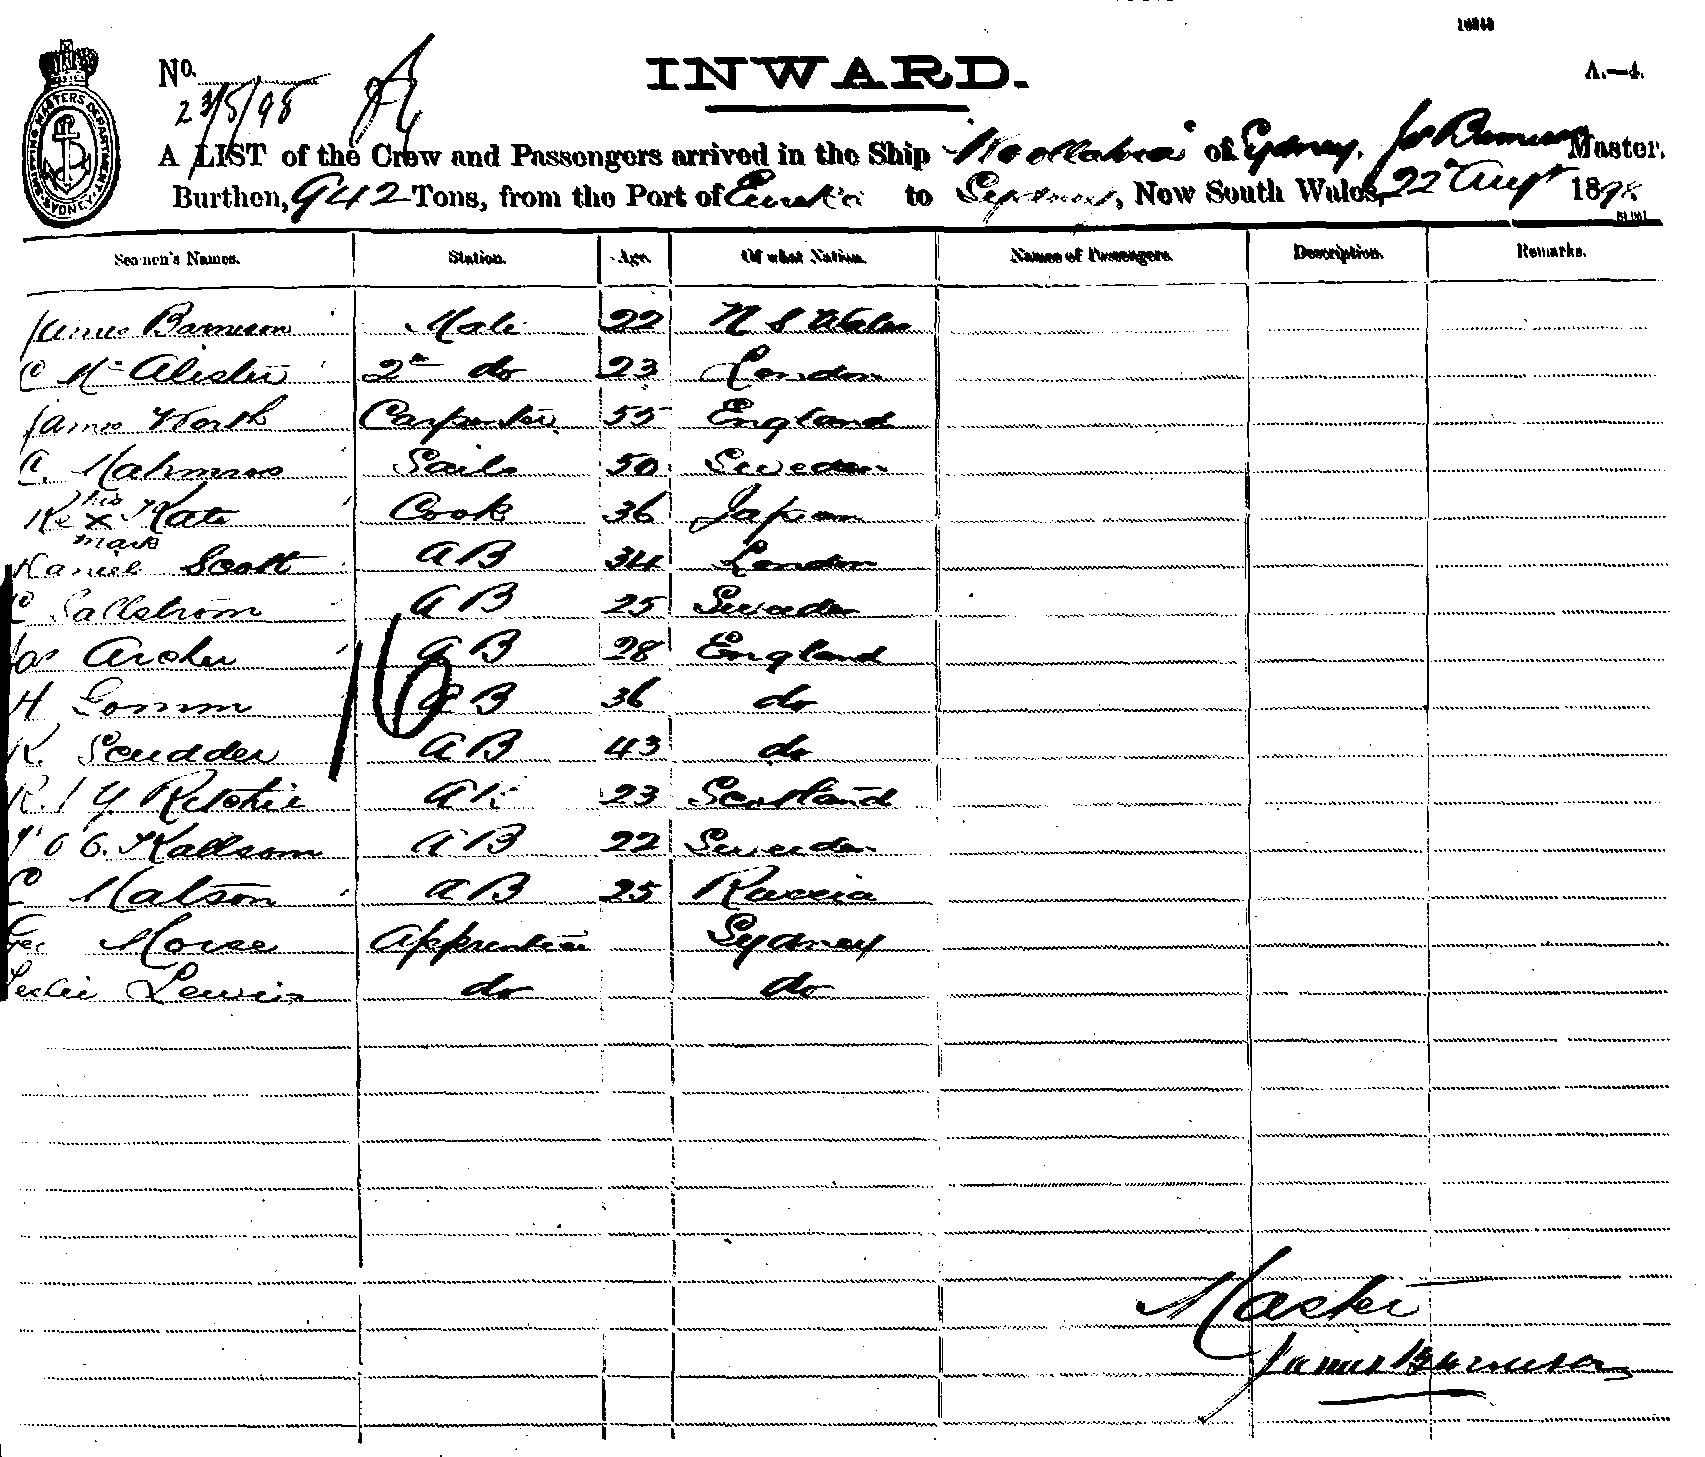 16049
No.
INWARD.
A.—4.
23/8/98
SHIPPING MASTERS DEPARTMENT SYDNEY
A LIST of the Crew and Passengers arrived in the Ship "Woollahra" of Sydney, Js Barneson Master.
Burthen, 942 Tons, from the Port of Eureka to Sydney, New South Wales, 22d Augt 1898
Seamen's Names. Station. Age. Of what Nation. Names of Passengers. Description. Remarks.
James Barneson Mate 22 N S Wales
C McAlister 2nd do 23 London
James Worth Carpenter 55 England
C. Sails 50 Sweden
his
Ke x Kate Cook 36 Japan
mark
Daniel Scott A B 34 London
C Sallstrom A B 25 Sweden
Jas Archer A B 28 England
H Gomm A B 36 do
R. Scudder A B 43 do
16
Ritchie A B 23 Scotland
Kallsom A B 22 Sweden
C Matson A B 25 Russia
Geo Morse Apprentice Sydney
Leslie Lewis do do
Master
James Barneson